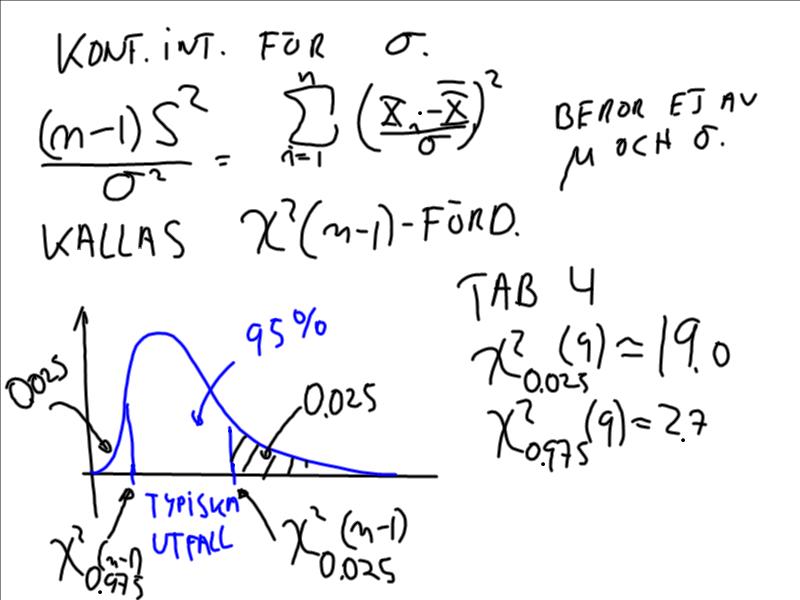 KONF. INT. FÖR σ.
(n-1)S² / σ² = Σ_{i=1}^{n} ((X_i - X̄) / σ)²
BEROR EJ AV
μ OCH σ.
KALLAS χ²(n-1)-FÖRD.
TAB 4
χ²_{0.025}(9) ≈ 19.0
χ²_{0.975}(9) ≈ 2.7
95%
0.025
0.025
TYPISKA
UTFALL
χ²_{0.975}(n-1)
χ²_{0.025}(n-1)